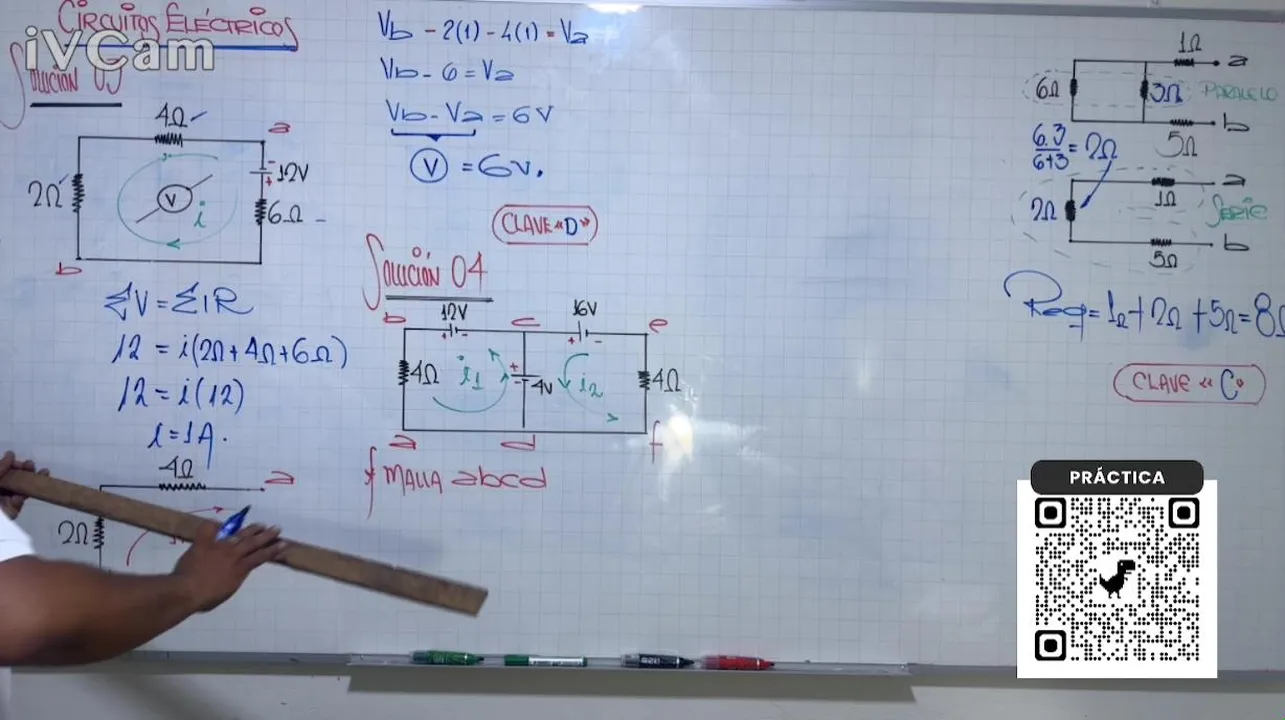 CIRCUITOS ELÉCTRICOS
iVCam
SOLUCIÓN 03
4Ω
a
2Ω
V
i
-
12V
+
6Ω
b
ΣV = ΣIR
12 = i(2Ω+4Ω+6Ω)
12 = i(12)
i = 1A.
4Ω
a
2Ω
Vb - 2(1) - 4(1) = Va
Vb - 6 = Va
Vb - Va = 6V
V = 6V.
CLAVE "D"
SOLUCIÓN 04
12V
16V
b
+ -
c
+ -
e
4Ω
i1
+
-
4V
i2
4Ω
a
d
f
* MALLA abcd
1Ω
a
6Ω
3Ω
PARALELO
b
5Ω
6.3
6+3
= 2Ω
a
1Ω
2Ω
SERIE
b
5Ω
Req = 1Ω + 2Ω + 5Ω = 8Ω
CLAVE "C"
PRÁCTICA